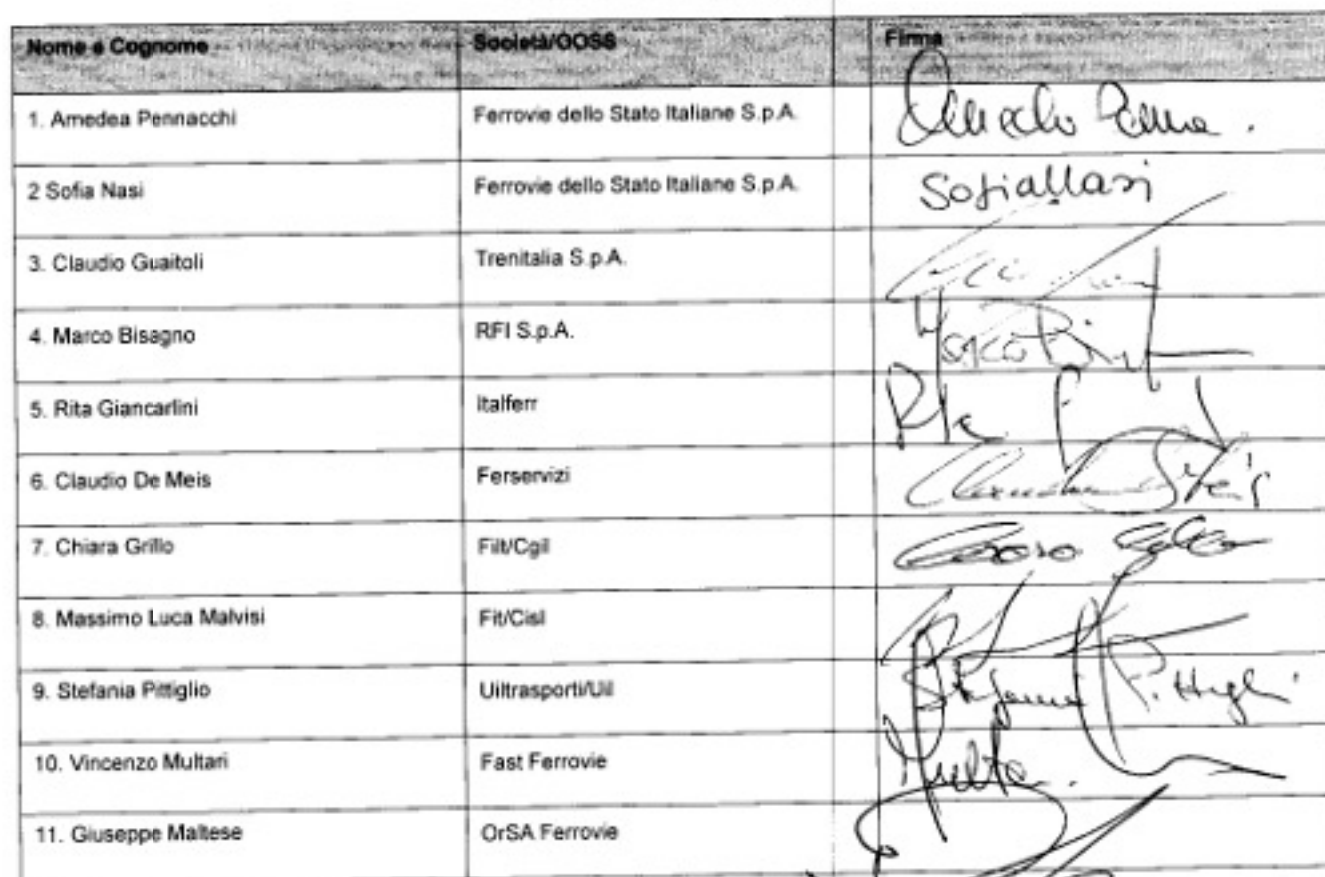 Nome e Cognome Società/OOSS Firma
1. Amedea Pennacchi Ferrovie dello Stato Italiane S.p.A.
2 Sofia Nasi Ferrovie dello Stato Italiane S.p.A. Sofia Nasi
3. Claudio Guaitoli Trenitalia S.p.A.
4. Marco Bisagno RFI S.p.A. Marco
5. Rita Giancarlini Italferr
6. Claudio De Meis Ferservizi
7. Chiara Grillo Filt/Cgil
8. Massimo Luca Malvisi Fit/Cisl
9. Stefania Pittiglio Uiltrasporti/Uil
10. Vincenzo Multari Fast Ferrovie
11. Giuseppe Maltese OrSA Ferrovie